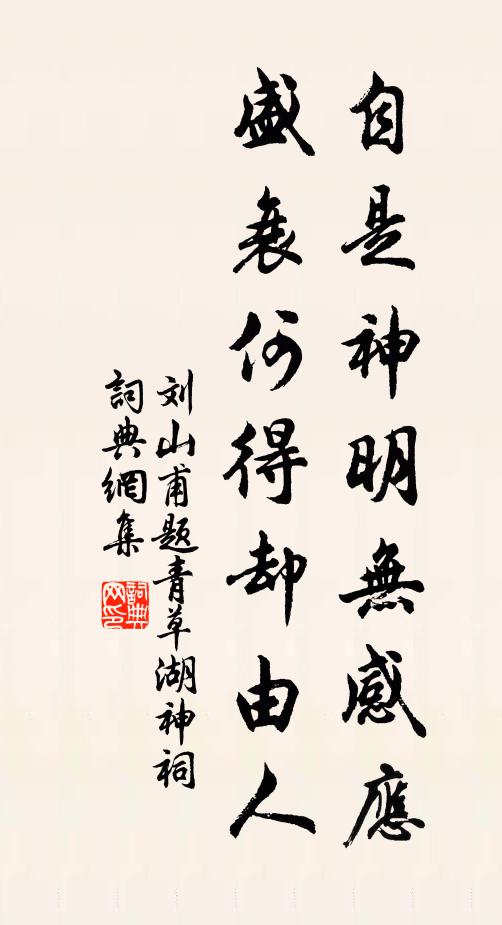 自是神明無感應
盛衰何得却由人
刘山甫题青草湖神祠
詞典網集
詞典網印